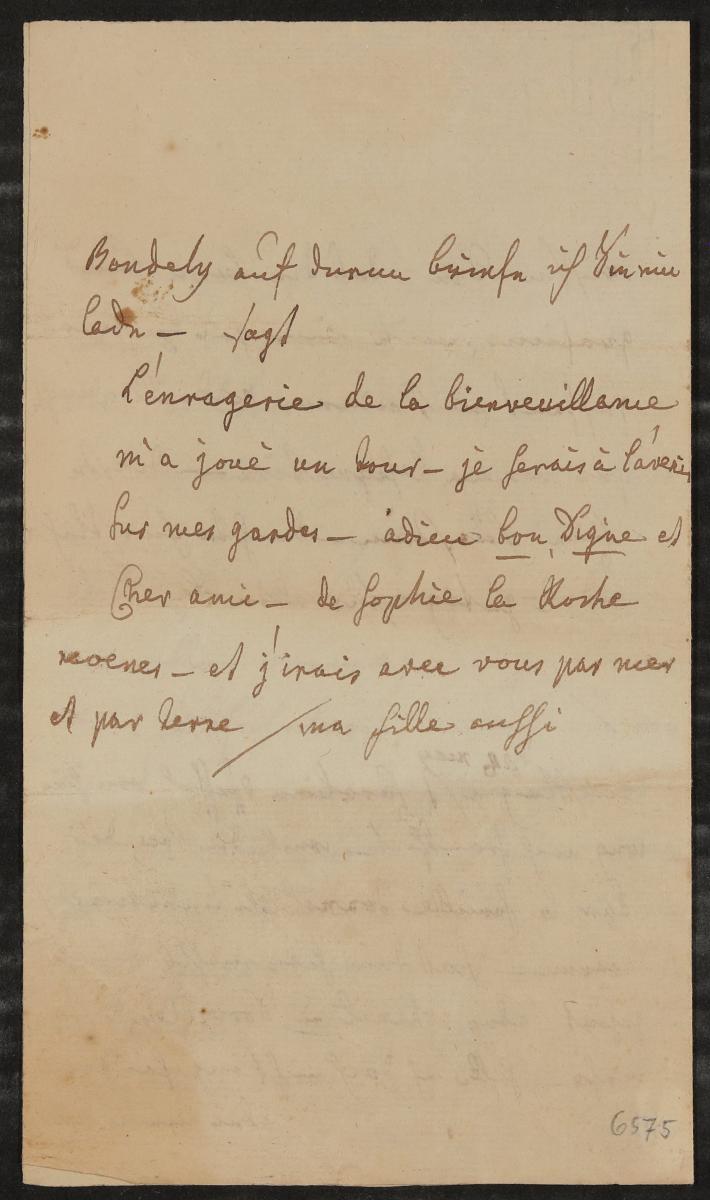 Bondely auf deren briefe ich Sie ein
lade — sagt
L'enragerie de la bienveuillance
m'a joué un tour — je serais à l'avenir
sur mes gardes — adieu bon, digne et
Cher ami — de sophie la Roche
revenes — et j'irais avec vous par mer
et par terre / ma fille aussi
6575